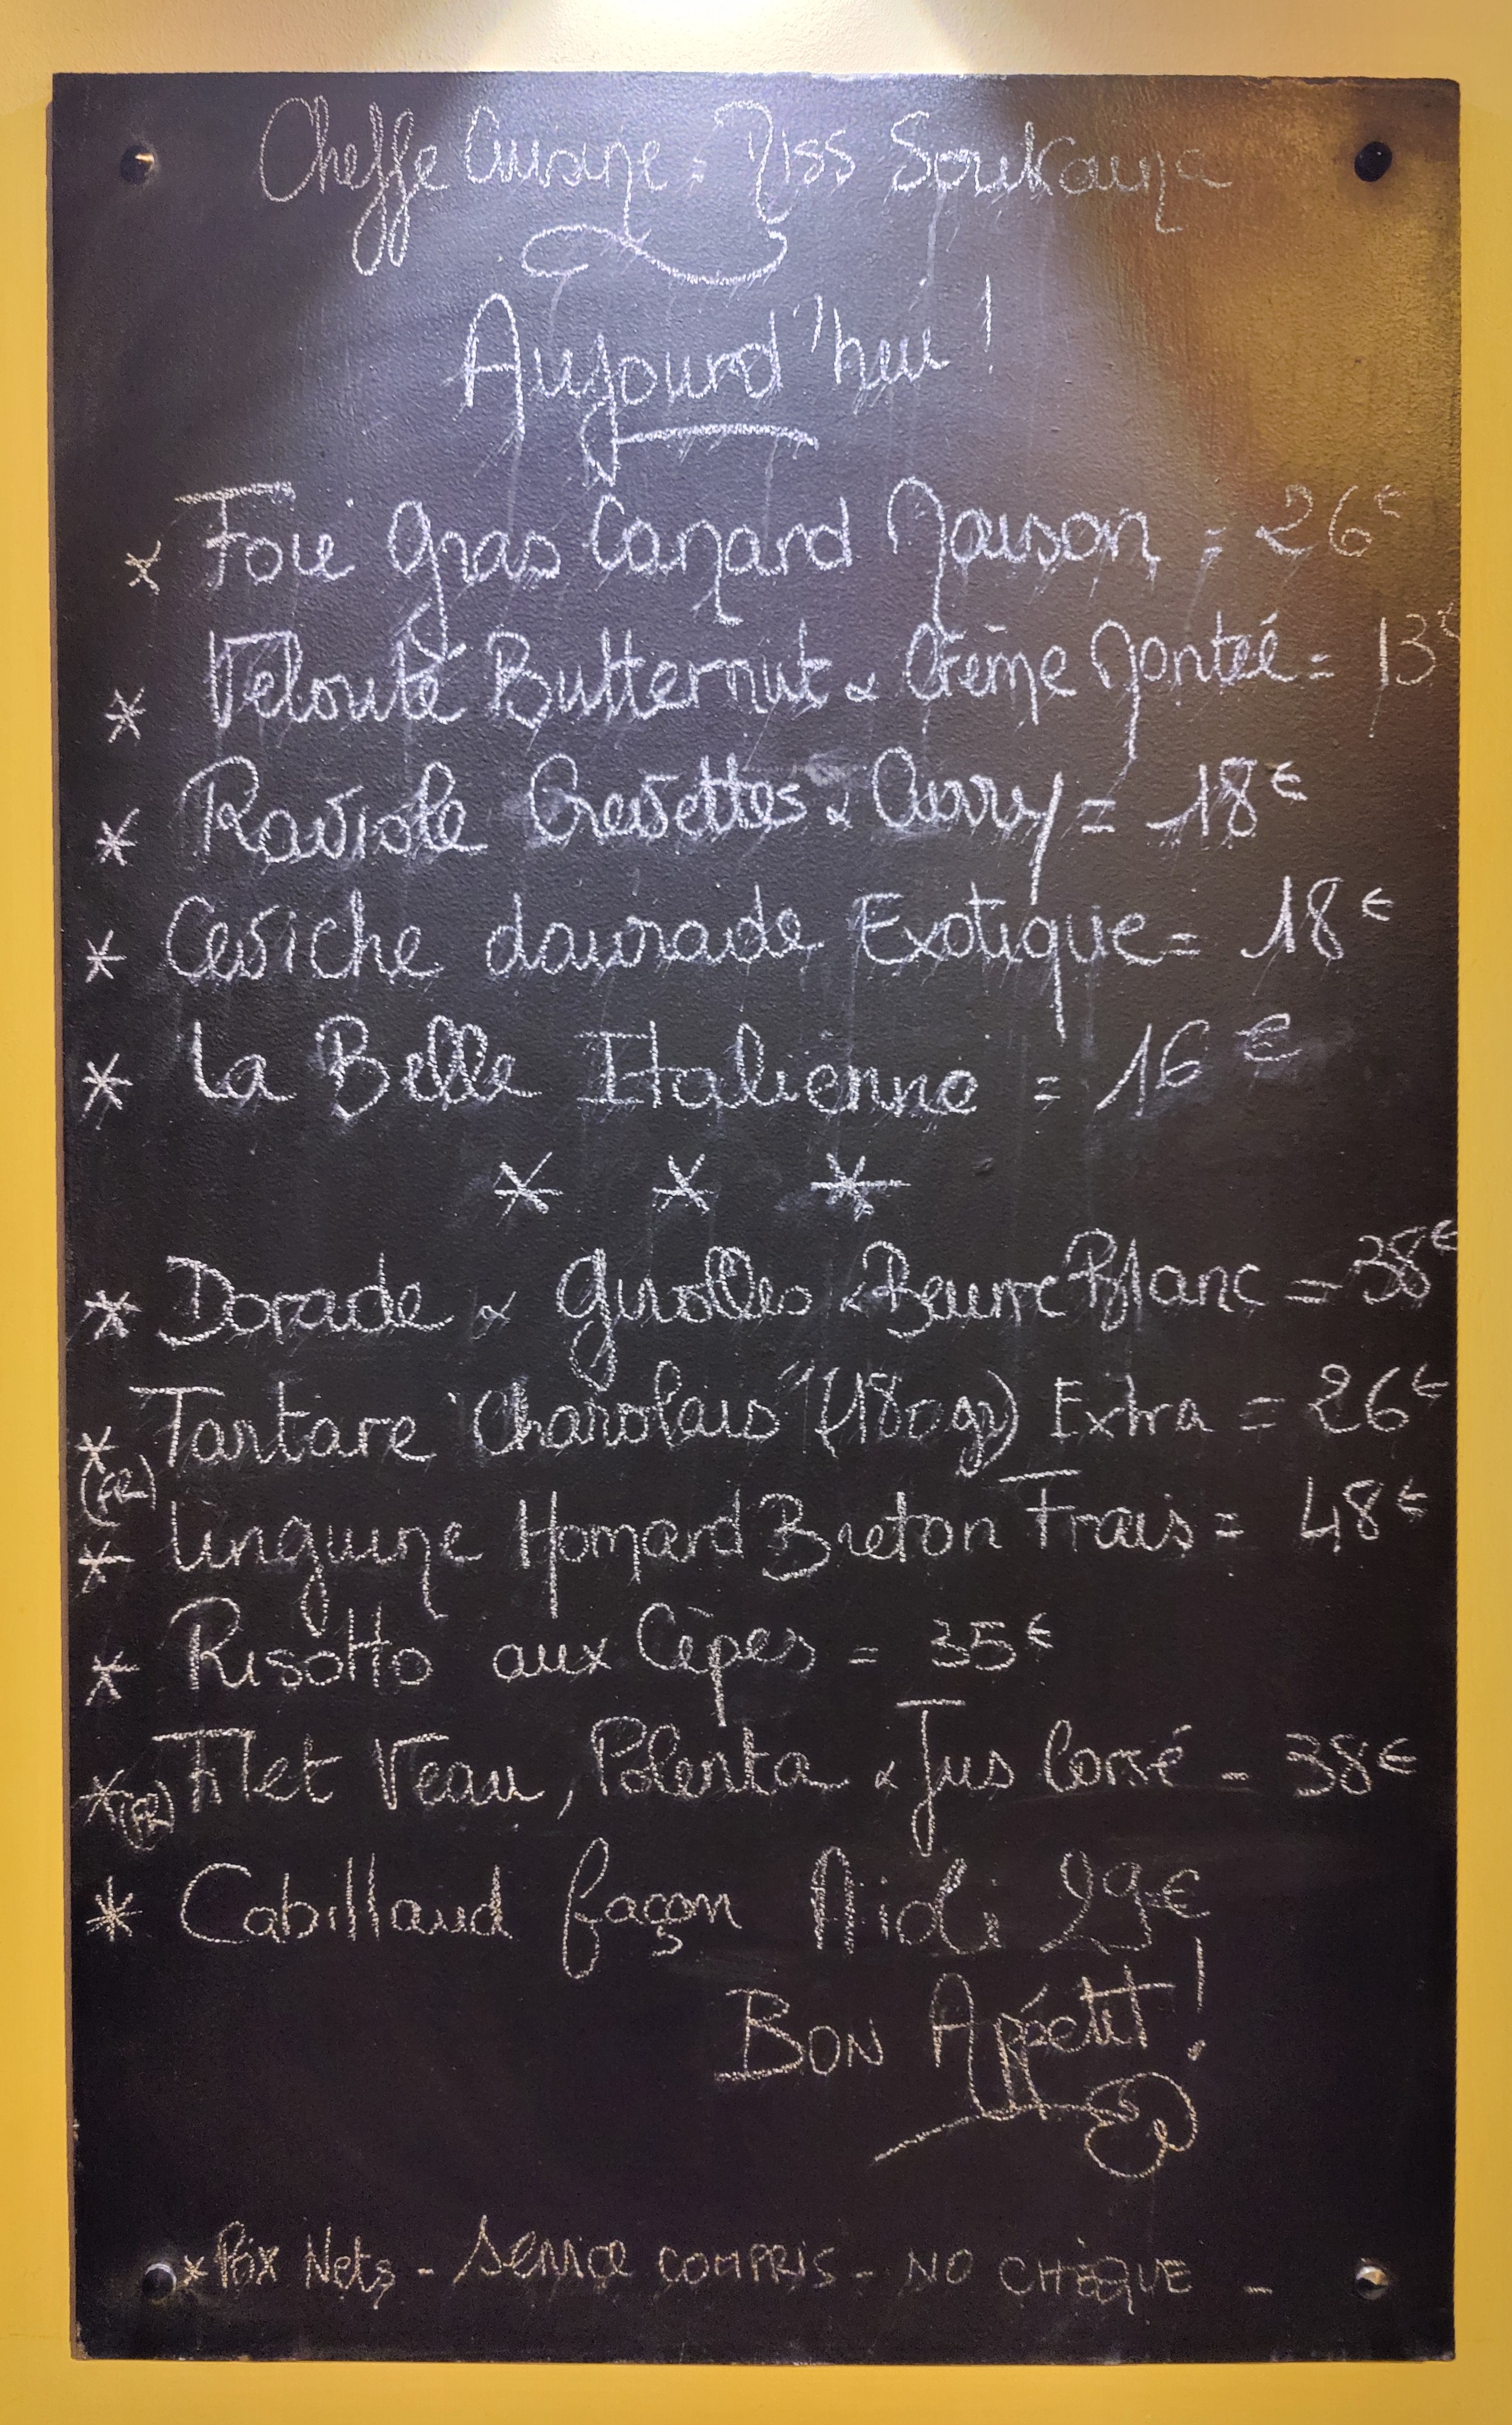 Cheffe Cuisine : Miss Soukaina
Aujourd'hui !
* Foie Gras Canard Maison : 26€
* Velouté Butternut & Crème Montée = 13€
* Raviole Crevettes & Curry = 18€
* Ceviche daurade Exotique = 18€
* La Belle Italienne = 16€
* * *
* Dorade & Girolles & Beurre Blanc = 38€
* Tartare "Charolais" (180gr) Extra = 26€
(FR)
* Linguine Homard Breton Frais = 48€
* Risotto aux Cèpes = 35€
* (FR) Filet Veau, Polenta & Jus Corsé - 38€
* Cabillaud façon Aioli 29€
BON Appétit !
* Prix Nets - Service COMPRIS - NO CHÈQUE -